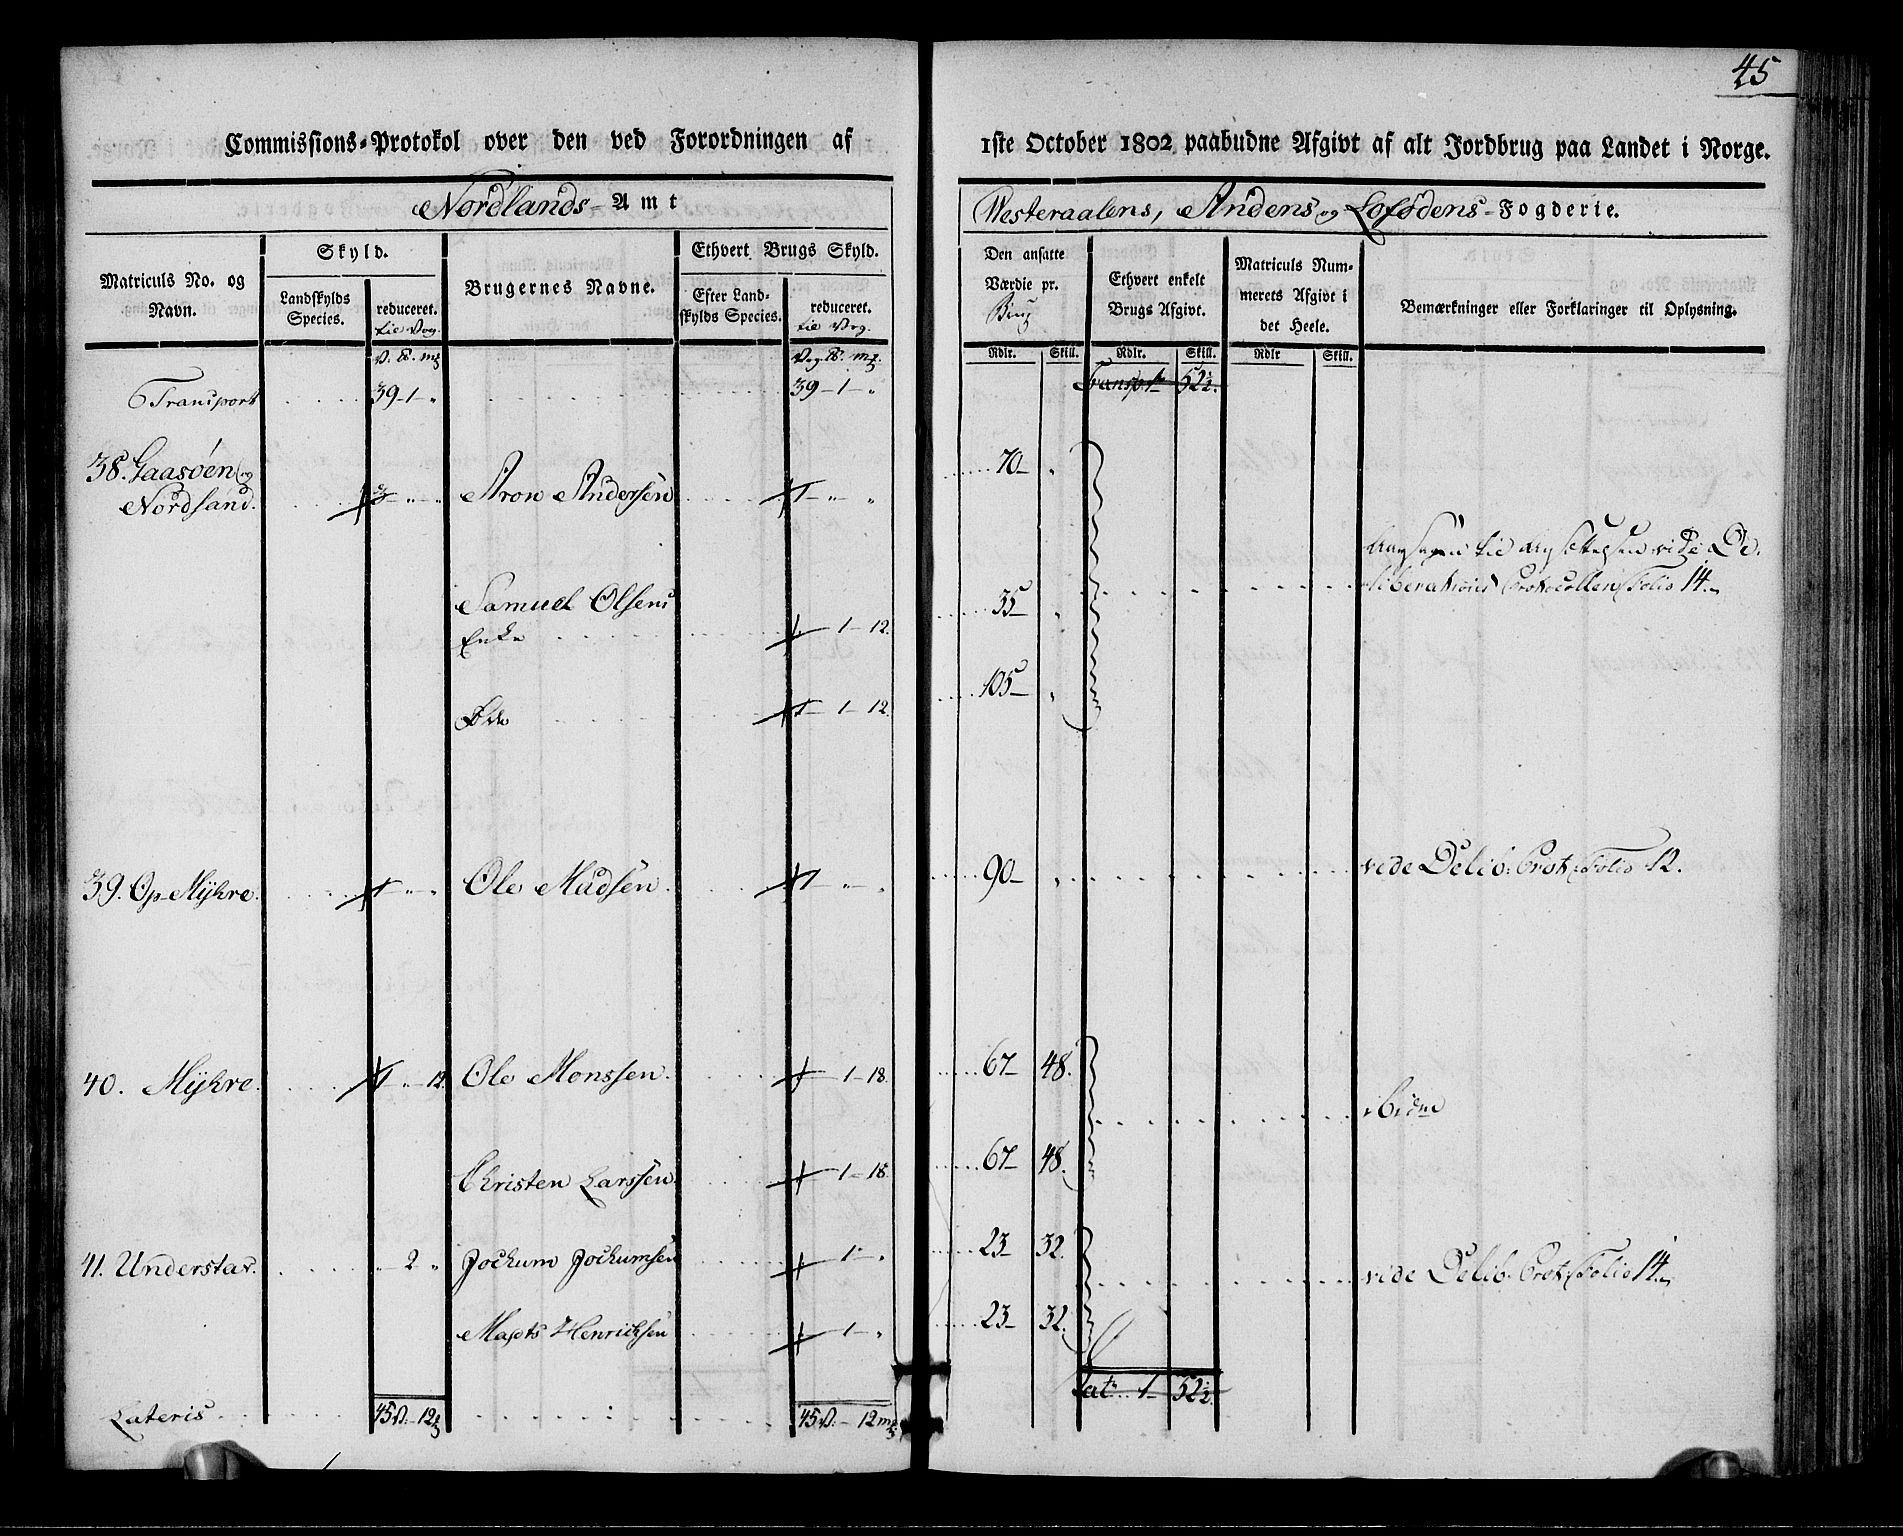 45
Commissions-Protokol over den ved Forordningen af 1ste October 1802 paabudne Afgivt af alt Jordbrug paa Landet i Norge.
Nordlands-Amt Westeraalens, Andens og Lofodens-Fogderie.
Matriculs No. og Navn.
Skyld.
Landskylds Species.
reduceret. til Vog.
Brugernes Navne.
Ethvert Brugs Skyld.
Efter Landskylds Species.
reduceret. til Vog.
Den ansatte Værdie pr. Brug
Ethvert enkelt Brugs Afgivt.
Matriculs Nummerets Afgivt i det Heele.
Bemærkninger eller Forklaringer til Oplysning.
V. ℔. mk Vog ℔. mk. Rdlr. Skill. Rdlr. Skill. Rdlr Skill.
Transport 39-1-" 39-1-" Transp. 1- 52½.
38. Gaasøen og 70- "
Nordsand. 3 " " Aron Andersen 1- " "
vide De-
Samuel Olsens 35- " liberations Protocollen Folio 14.
Enke 1-12.
105- "
1-1-12.
39. Op-Mÿkre. 1 " " Ole Madsen. 1- " " 90- " vide Delib: Prot: Folio 12.
40. Mÿkre. 1 " 12 Ole Monssen. 1-18. 67- 48. ibidm
Christen Larssen. 1-18. 67- 48.
41. Understav. " 2 " Jochum Jochumsen 1- " 23- 32. vide Delib. Prot: Folio 14.
Mașts Henrichsen 1- " 23- 32.
Lateris 45V.- 12 45V.- 12mk Lat. 1- 52½.